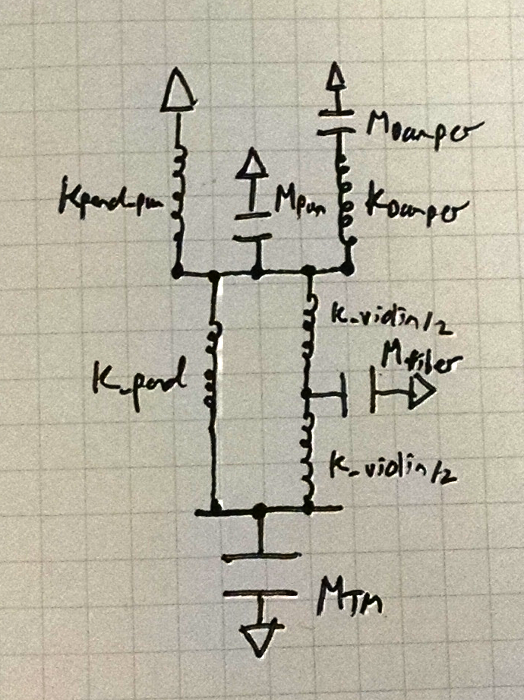 Mdamper
Kpend-pum
Mpum
Kdamper
K_violin/2
Mfiber
K_pend
K_violin/2
MTM